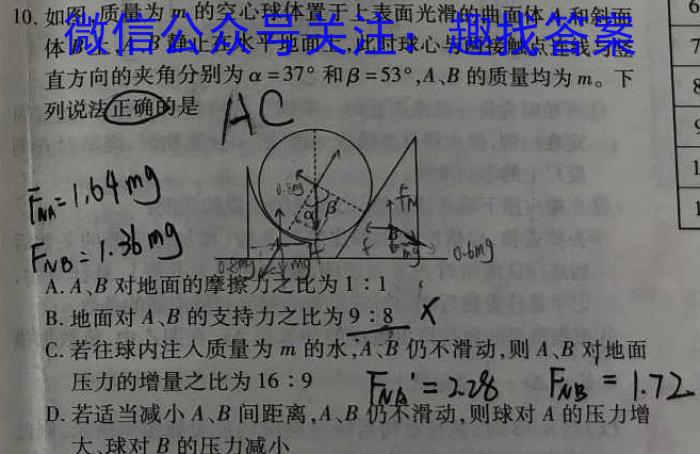 10. 如图,质量为 m 的空心球体置于上表面光滑的曲面体 A 和斜面
微信公众号关注：趣找答案
体 B 上,A、B 静止在水平地面上,此时球心与两接触点连线与竖
直方向的夹角分别为 α=37° 和 β=53°,A、B 的质量均为 m。下
列说法正确的是
AC
F_NA=1.64mg
F_NB=1.36mg
0.8mg
α
β
F_N
f
B
mg
0.6mg
0.8mg
mg
A. A、B 对地面的摩擦力之比为 1：1
B. 地面对 A、B 的支持力之比为 9：8 X
C. 若往球内注入质量为 m 的水,A、B 仍不滑动,则 A、B 对地面
压力的增量之比为 16：9
F_NA'=2.28 F_NB=1.72
D. 若适当减小 A、B 间距离,A、B 仍不滑动,则球对 A 的压力增
大、球对 B 的压力减小
6
7
8
9
1
1